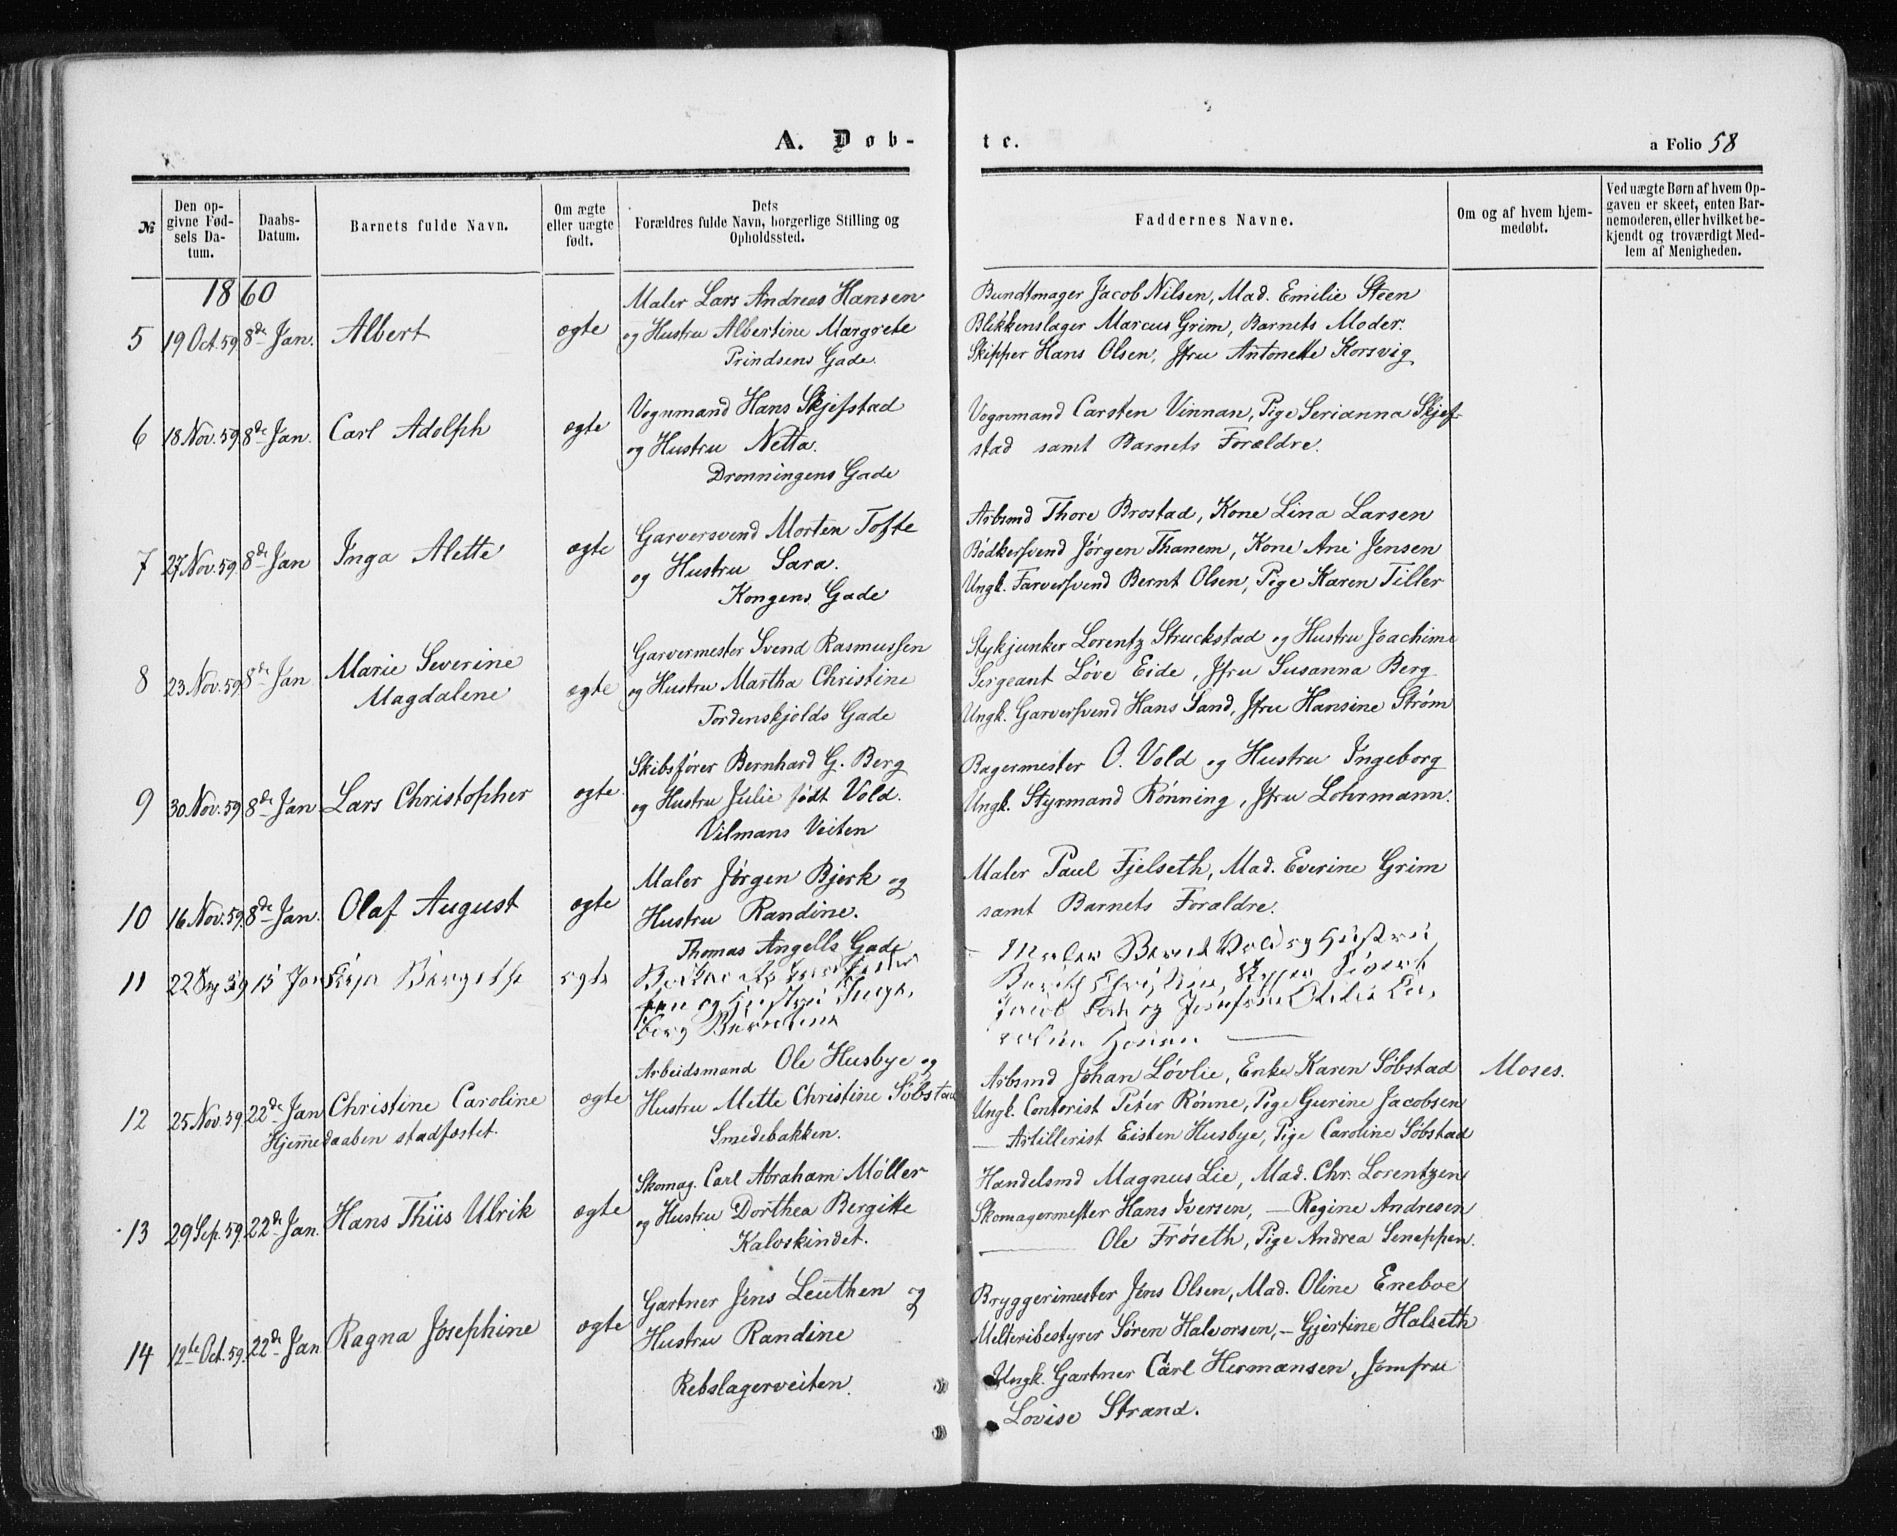 A. Døb-
te.
a Folio 58
№
Den op-
givne Fød-
sels Da-
tum.
Daabs-
Datum.
Barnets fulde Navn.
Om ægte
eller uægte
født.
Dets
Forældres fulde Navn, borgerlige Stilling og
Opholdssted.
Faddernes Navne.
Om og af hvem hjem-
medøbt.
Ved uægte Børn af hvem Op-
gaven er skeet, enten Bar-
nemoderen, eller hvilket be-
kjendt og troværdigt Med-
lem af Menigheden.
1860
5 19 Oct. 59. 8de Jan. Albert ægte
Maler Lars Andreas Hansen
og Hustru Albertine Margrete
Prindsens Gade.
Bundtmager Jacob Nilsen, Mad. Emilie Steen
Blikkenslager Marcus Grim, Barnets Moder.
Skipper Hans Olsen, Jfru Antonette Korsvig
6 18 Nov. 59. 8de Jan. Carl Adolph ægte
Vognmand Hans Skjefstad
og Hustru Netta.
Dronningens Gade
Vognmand Carsten Vinnan, Pige Serianna Skjef-
stad samt Barnets Forældre.
7 27 Nov. 59. 8de Jan Inga Alette ægte
Garversvend Morten Tofte
og Hustru Sara.
Kongens Gade
Arbsmd Thore Brostad, Kone Lina Larsen
Bødkersvend Jørgen Thanem, Kone Ane Jensen
Ungk. Farversvend Bernt Olsen, Pige Karen Tiller
8 23 Nov. 59. 8de Jan Marie Severine
Magdalene
ægte
Garvermester Svend Rasmussen
og Hustru Martha Christine
Tordenskjolds Gade
Stykjunker Lorentz Struckstad og Hustru Joachime
Sergeant Løve Eide, Jfru Susanna Berg
Ungk. Garversvend Hans Sand, Jfru Hansine Strøm
9 30 Nov. 59. 8de Jan Lars Christopher ægte
Skibsfører Bernhard G. Berg
og Hustru Julie født Vold.
Vilmans Veiten
Bagermester O. Vold og Hustru Ingeborg
Ungk. Styrmand Rønning, Jfru Lohrmann.
10 16 Nov. 59. 8de Jan. Olaf August ægte
Maler Jørgen Bjerk og
Hustru Randine.
Thomas Angells Gade
Maler Paul Fjelseth, Mad. Everine Grim
samt Barnets Forældre.
11 22 59 15 Jan ægte
og Hustru Inge-
borg
og Hustru
Jacob og Jomfru
12 25 Nov. 59. 22de Jan Christine Caroline ægte
Hjemmedaaben stadfæstet.
Arbeidsmand Ole Husbye og
Hustru Mette Christine Søbstad
Smedebakken.
Arbsmd Johan Løvlie, Enke Karen Søbstad
Ungk. Contorist Peter Rønne, Pige Gurine Jacobsen
— Artillerist Eisten Husbye, Pige Caroline Søbstad
Moses.
13 29 Sep. 59. 22de Jan. Hans Thiis Ulrik ægte
Skomag. Carl Abraham Møller
og Hustru Dorthea Bergitte
Kalvskindet.
Handelsmd Magnus Lie, Mad. Chr. Lorentzen
Skomagermester Hans Iversen, — Regine Andresen
— Ole Frøseth, Pige Andrea Seneppen.
14 12te Oct. 59. 22de Jan Ragna Josephine ægte
Gartner Jens Leuthen og
Hustru Randine
Rebslagerveiten.
Bryggerimester Jens Olsen, Mad. Oline Eneboe
Melteribestyrer Søren Halvorsen, — Gjertine Halseth
Ungk. Gartner Carl Hermansen, Jomfru
Lovise Strand.